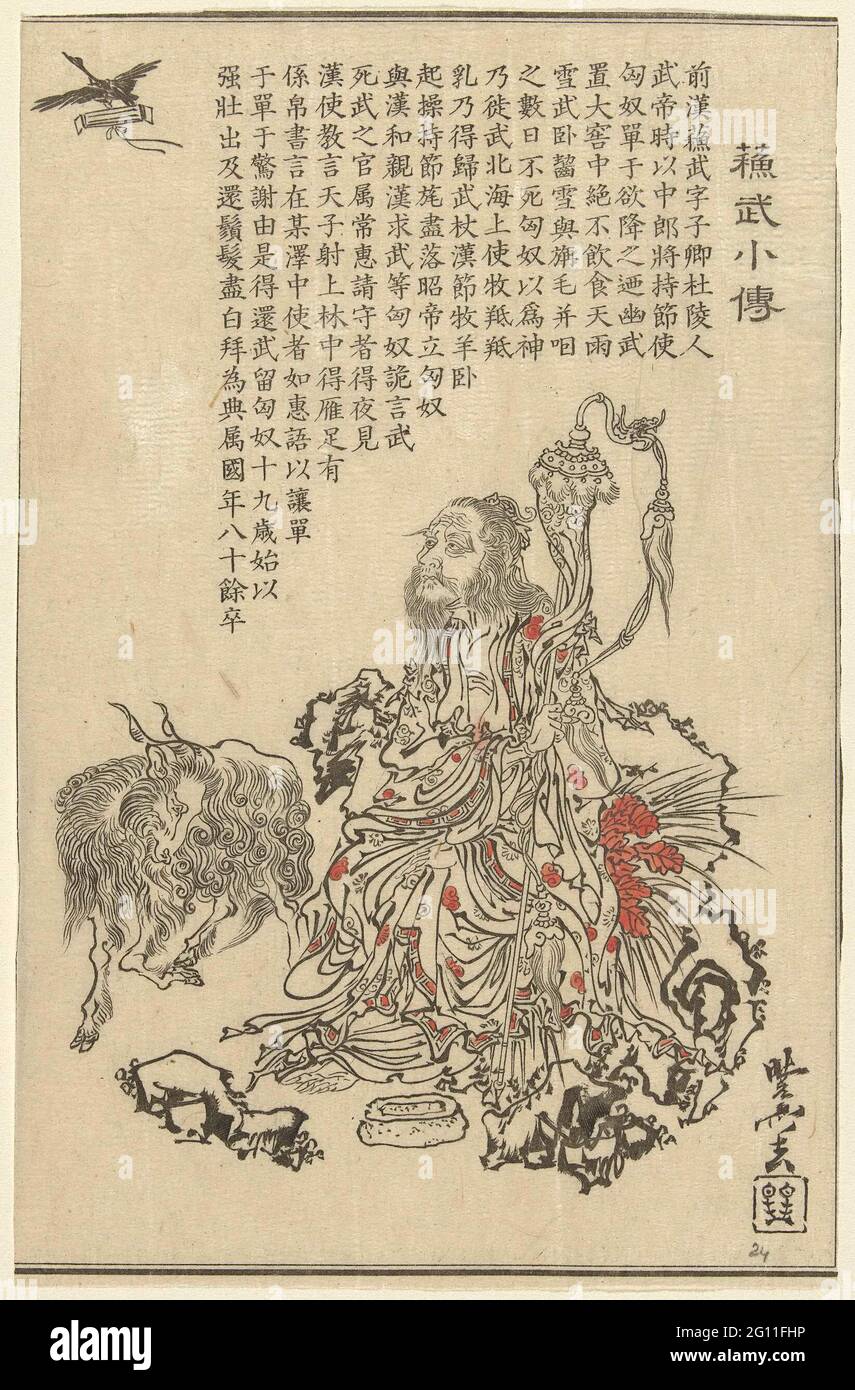 蘓武小傳
前漢蘓武字子卿杜陵人
武帝時以中郎將持節使
匈奴單于欲降之迺幽武
置大窖中絶不飲食天雨
雪武卧齧雪與旃毛并咽
之數日不死匈奴以爲神
乃徙武北海上使牧羝羝
乳乃得歸武杖漢節牧羊卧
起操持節旄盡落昭帝立匈奴
與漢和親漢求武等匈奴詭言武
死武之官属常惠請守者得夜見
漢使教言天子射上林中得雁足有
係帛書言在某澤中使者如惠語以讓單
于單于驚謝由是得還武留匈奴十九歳始以
强壮出及還鬚髮盡白拜為典属國年八十餘卒
24
alamy
Image ID: 2G11FHP
www.alamy.com